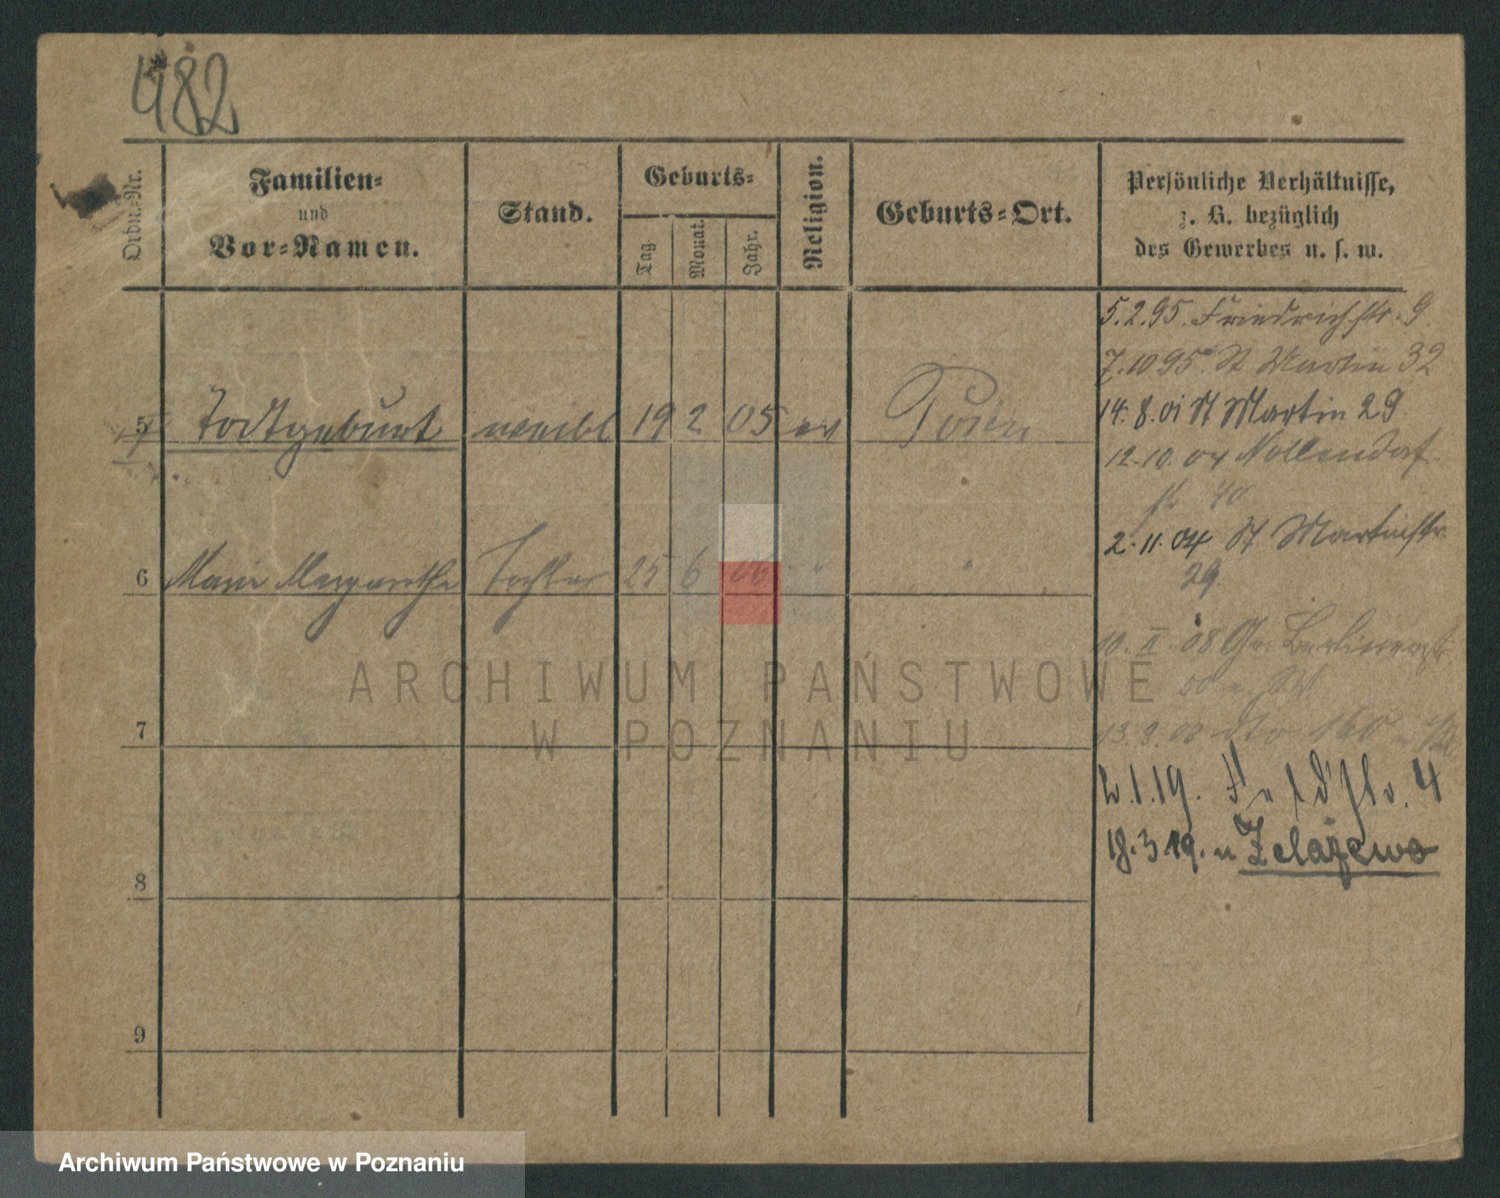 482
Ordn.-Nr.
Familien-
und
Vor-Namen.
Stand.
Geburts-
Tag.
Monat.
Jahr.
Religion.
Geburts-Ort.
Persönliche Verhältnisse,
z. B. bezüglich
des Gewerbes u. s. w.
5.2.95. Friedrichstr. 9
7.10 95. St Martin 32
5 Todtgeburt weibl 19 2 05 ev Posen
14.8.01 St Martin 29
12.10.04 Nollendorf
str 40
2.11.04 St Martinstr.
29.
6 Marie Margarethe Tochter 25 6 06 " "
10.II.08 Gr. Berlinerstr
ARCHIWUM PAŃSTWOWE
W POZNANIU
7
13.9.08 dto 160
2.1.19. Feldstr. 4
18.3.19. n Żelażewo
8
9
Archiwum Państwowe w Poznaniu